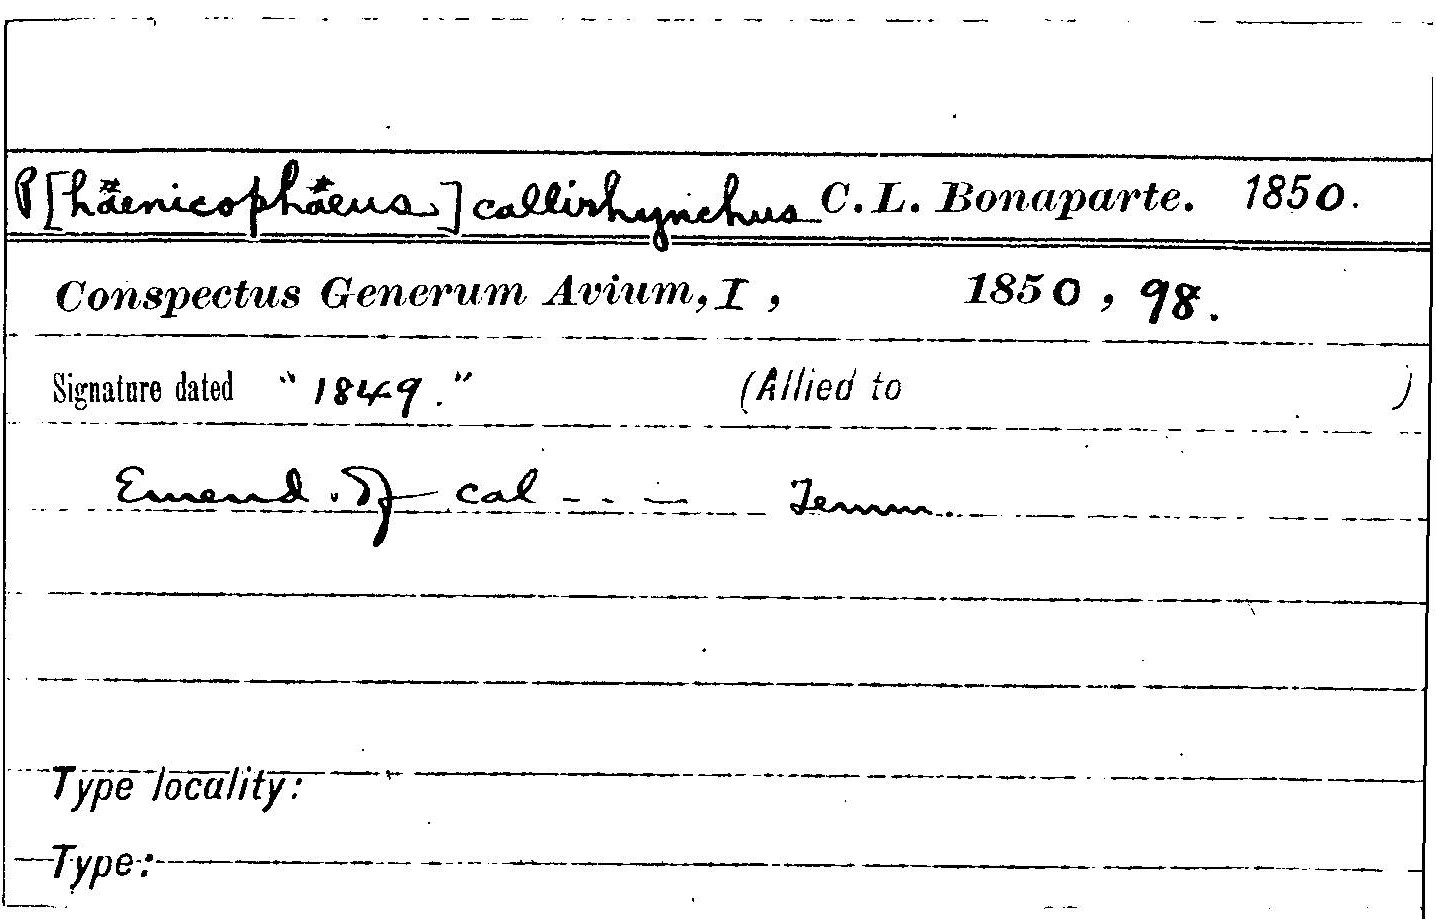 P[hænicophæus] callirhynchus C. L. Bonaparte. 1850.
Conspectus Generum Avium, I, 1850, 98.
Signature dated "1849." (Allied to )
Emend. of cal - - - Temm.
Type locality:
Type: